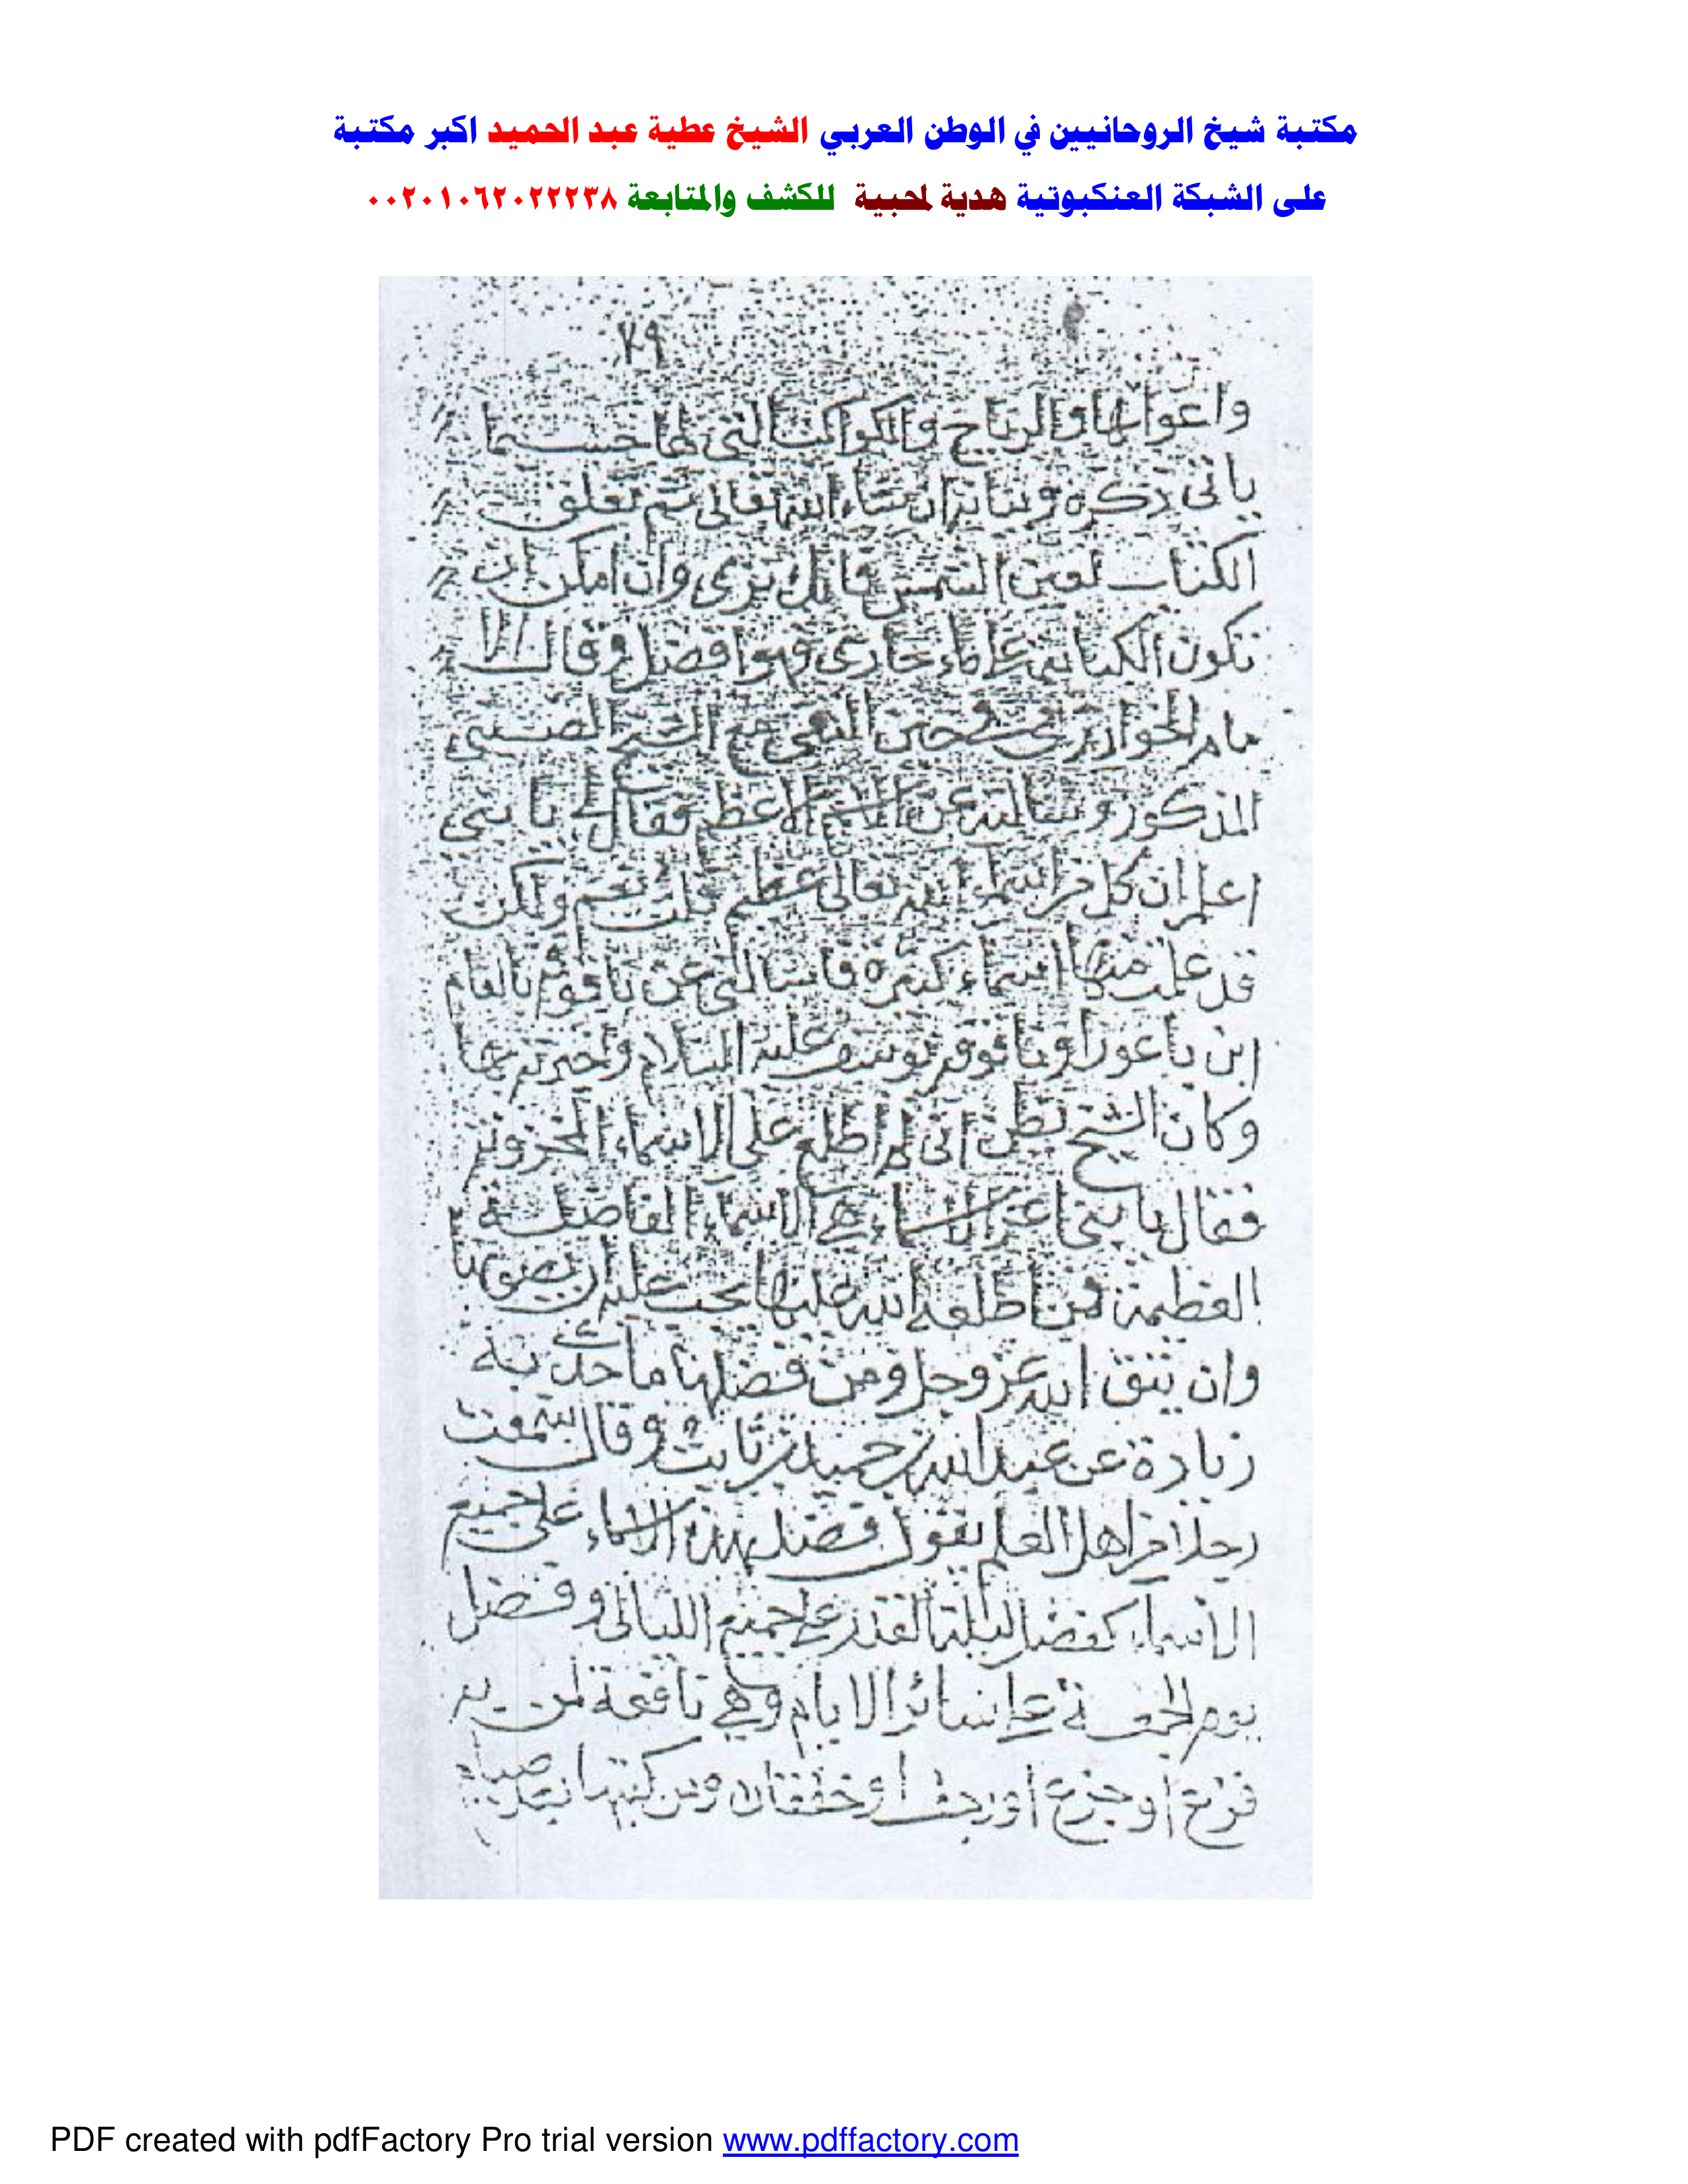 مكتبة شيخ الروحانيين في الوطن العربي الشيخ عطية عبد الحميد اكبر مكتبة
على الشبكة العنكبوتية هدية لمحبية للكشف والمتابعة ٠٠٢٠١٠٦٢٠٢٢٢٣٨
٢٩
واعوانها والرياح والكواكب التي لها حسبما
ياتى ذكره وبيانه ان شاء الله تعالى ثم تعلق
الكتاب لعين الشمس فانك ترى وان امكن ان
تكون الكتابة على ماء جارى فهو افضل وقال الا
مام الخوارزمى حين التقى مع الشيخ
المذكور وسالته عن الاسم الاعظم فقال لى يا بنى
اعلم ان كل من اسماء الله تعالى عظيم قلت نعم ولكن
قد علمت منها اسماء كثيرة فاسالك عن ياقوم بالعام
ابن باعورا وياقوم يوسف عليه السلام واخبرته بها
وكان الشيخ يظن انى لم اطلع على الاسماء المخزونة
فقال يا بنى اعز الاسماء هى الاسماء الفاضلة
العظيمة فمن اطلعه الله عليها يجب عليه ان يصونها
وان يتق الله عز وجل ومن فضلها ما حدث به
زيادة عن عبد الله بن حميد بن ثابت وقال سمعت
رجلا من اهل العلم يقول فضل هذه الاسماء على جميع
الاسماء كفضل ليلة القدر على جميع الليالى وفضل
يوم الجمعة على سائر الايام وهى نافعة لمن به
فزع او جزع او رجف او خفقان ومن كتبها
PDF created with pdfFactory Pro trial version www.pdffactory.com